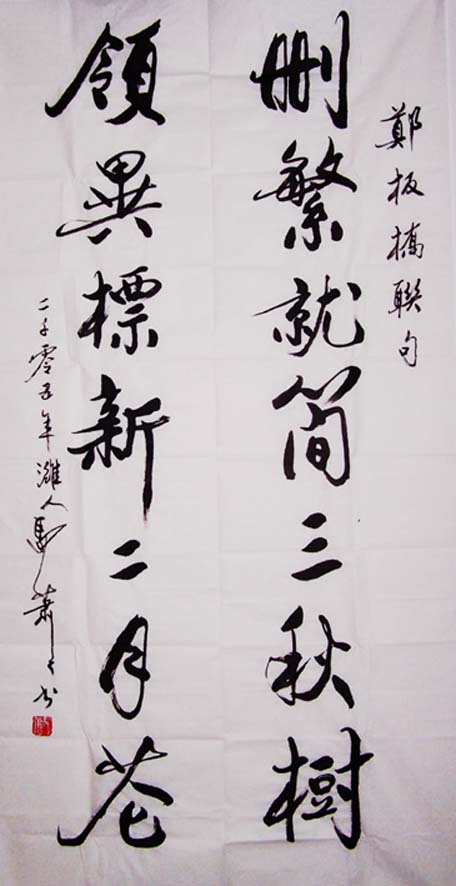 鄭板橋聯句
删繁就简三秋樹
領異標新二月花
二千零五年濰人馬蕭々书